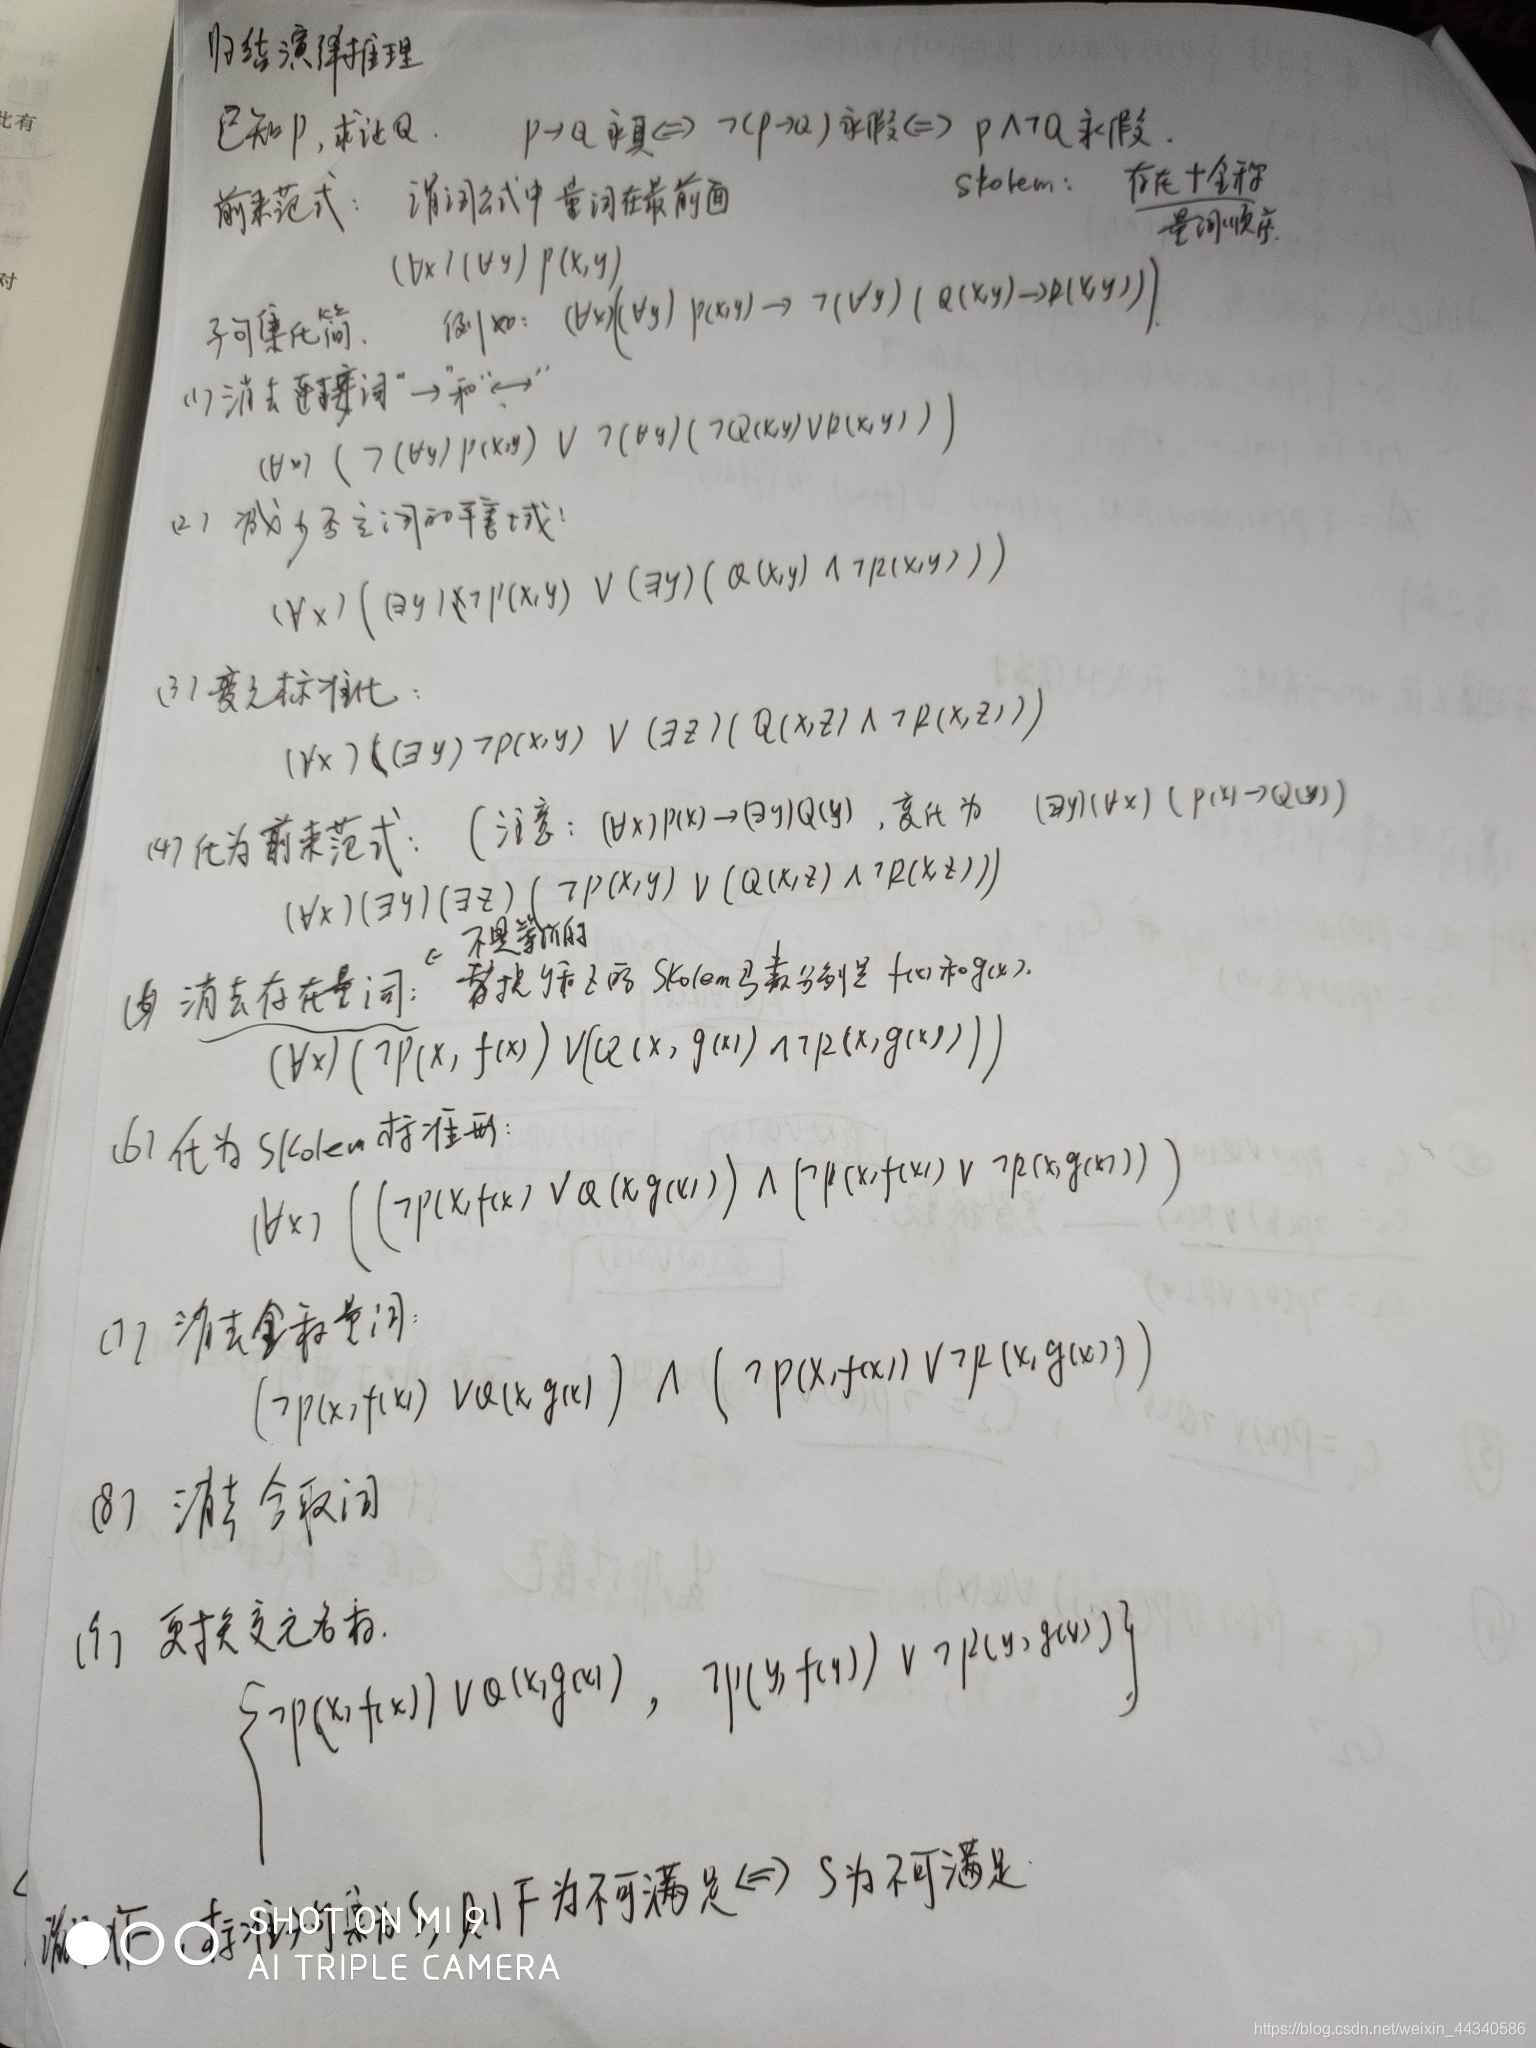 归结演绎推理
已知P,求证Q. P→Q 永真⇔ ¬(P→Q)永假⇔ P∧¬Q 永假.
前束范式: 谓词公式中量词在最前面 Skolem: 存在+全称
量词顺序.
(∀x)(∀y) P(x,y)
子句集化简. 例如: (∀x)((∀y) P(x,y)→ ¬(∀y)(Q(x,y)→R(x,y)))
(1) 消去连接词"→"和"↔"
(∀x) (¬(∀y)P(x,y) ∨ ¬(∀y)(¬Q(x,y)∨R(x,y)))
(2) 减少否定词的辖域:
(∀x)((∃y)(¬P(x,y) ∨ (∃y)(Q(x,y)∧¬R(x,y)))
(3) 变元标准化:
(∀x)((∃y)¬P(x,y) ∨ (∃z)(Q(x,z)∧¬R(x,z)))
(4) 化为前束范式: (注意: (∀x)P(x)→(∃y)Q(y), 变化为 (∃y)(∀x)(P(x)→Q(y))
(∀x)(∃y)(∃z)(¬P(x,y) ∨ (Q(x,z)∧¬R(x,z)))
← 不是等价的
(5) 消去存在量词: 替换y和z的Skolem函数分别是 f(x)和g(x).
(∀x)(¬P(x, f(x)) ∨(Q(x, g(x)) ∧¬R(x,g(x))))
(6) 化为Skolem标准形:
(∀x) ((¬P(x,f(x) ∨Q(x,g(x))) ∧ (¬P(x,f(x)) ∨ ¬R(x,g(x))))
(7) 消去全称量词:
(¬P(x,f(x)) ∨Q(x,g(x)) ∧ (¬P(x,f(x)) ∨¬R(x,g(x)))
(8) 消去合取词
(9) 更换变元名称.
{¬P(x,f(x))∨Q(x,g(x)), ¬P(y,f(y)) ∨ ¬R(y,g(y))}
F, 标准子句集为S, 则F为不可满足⇔ S为不可满足.
SHOT ON MI 9
AI TRIPLE CAMERA
此有
对
https://blog.csdn.net/weixin_44340586